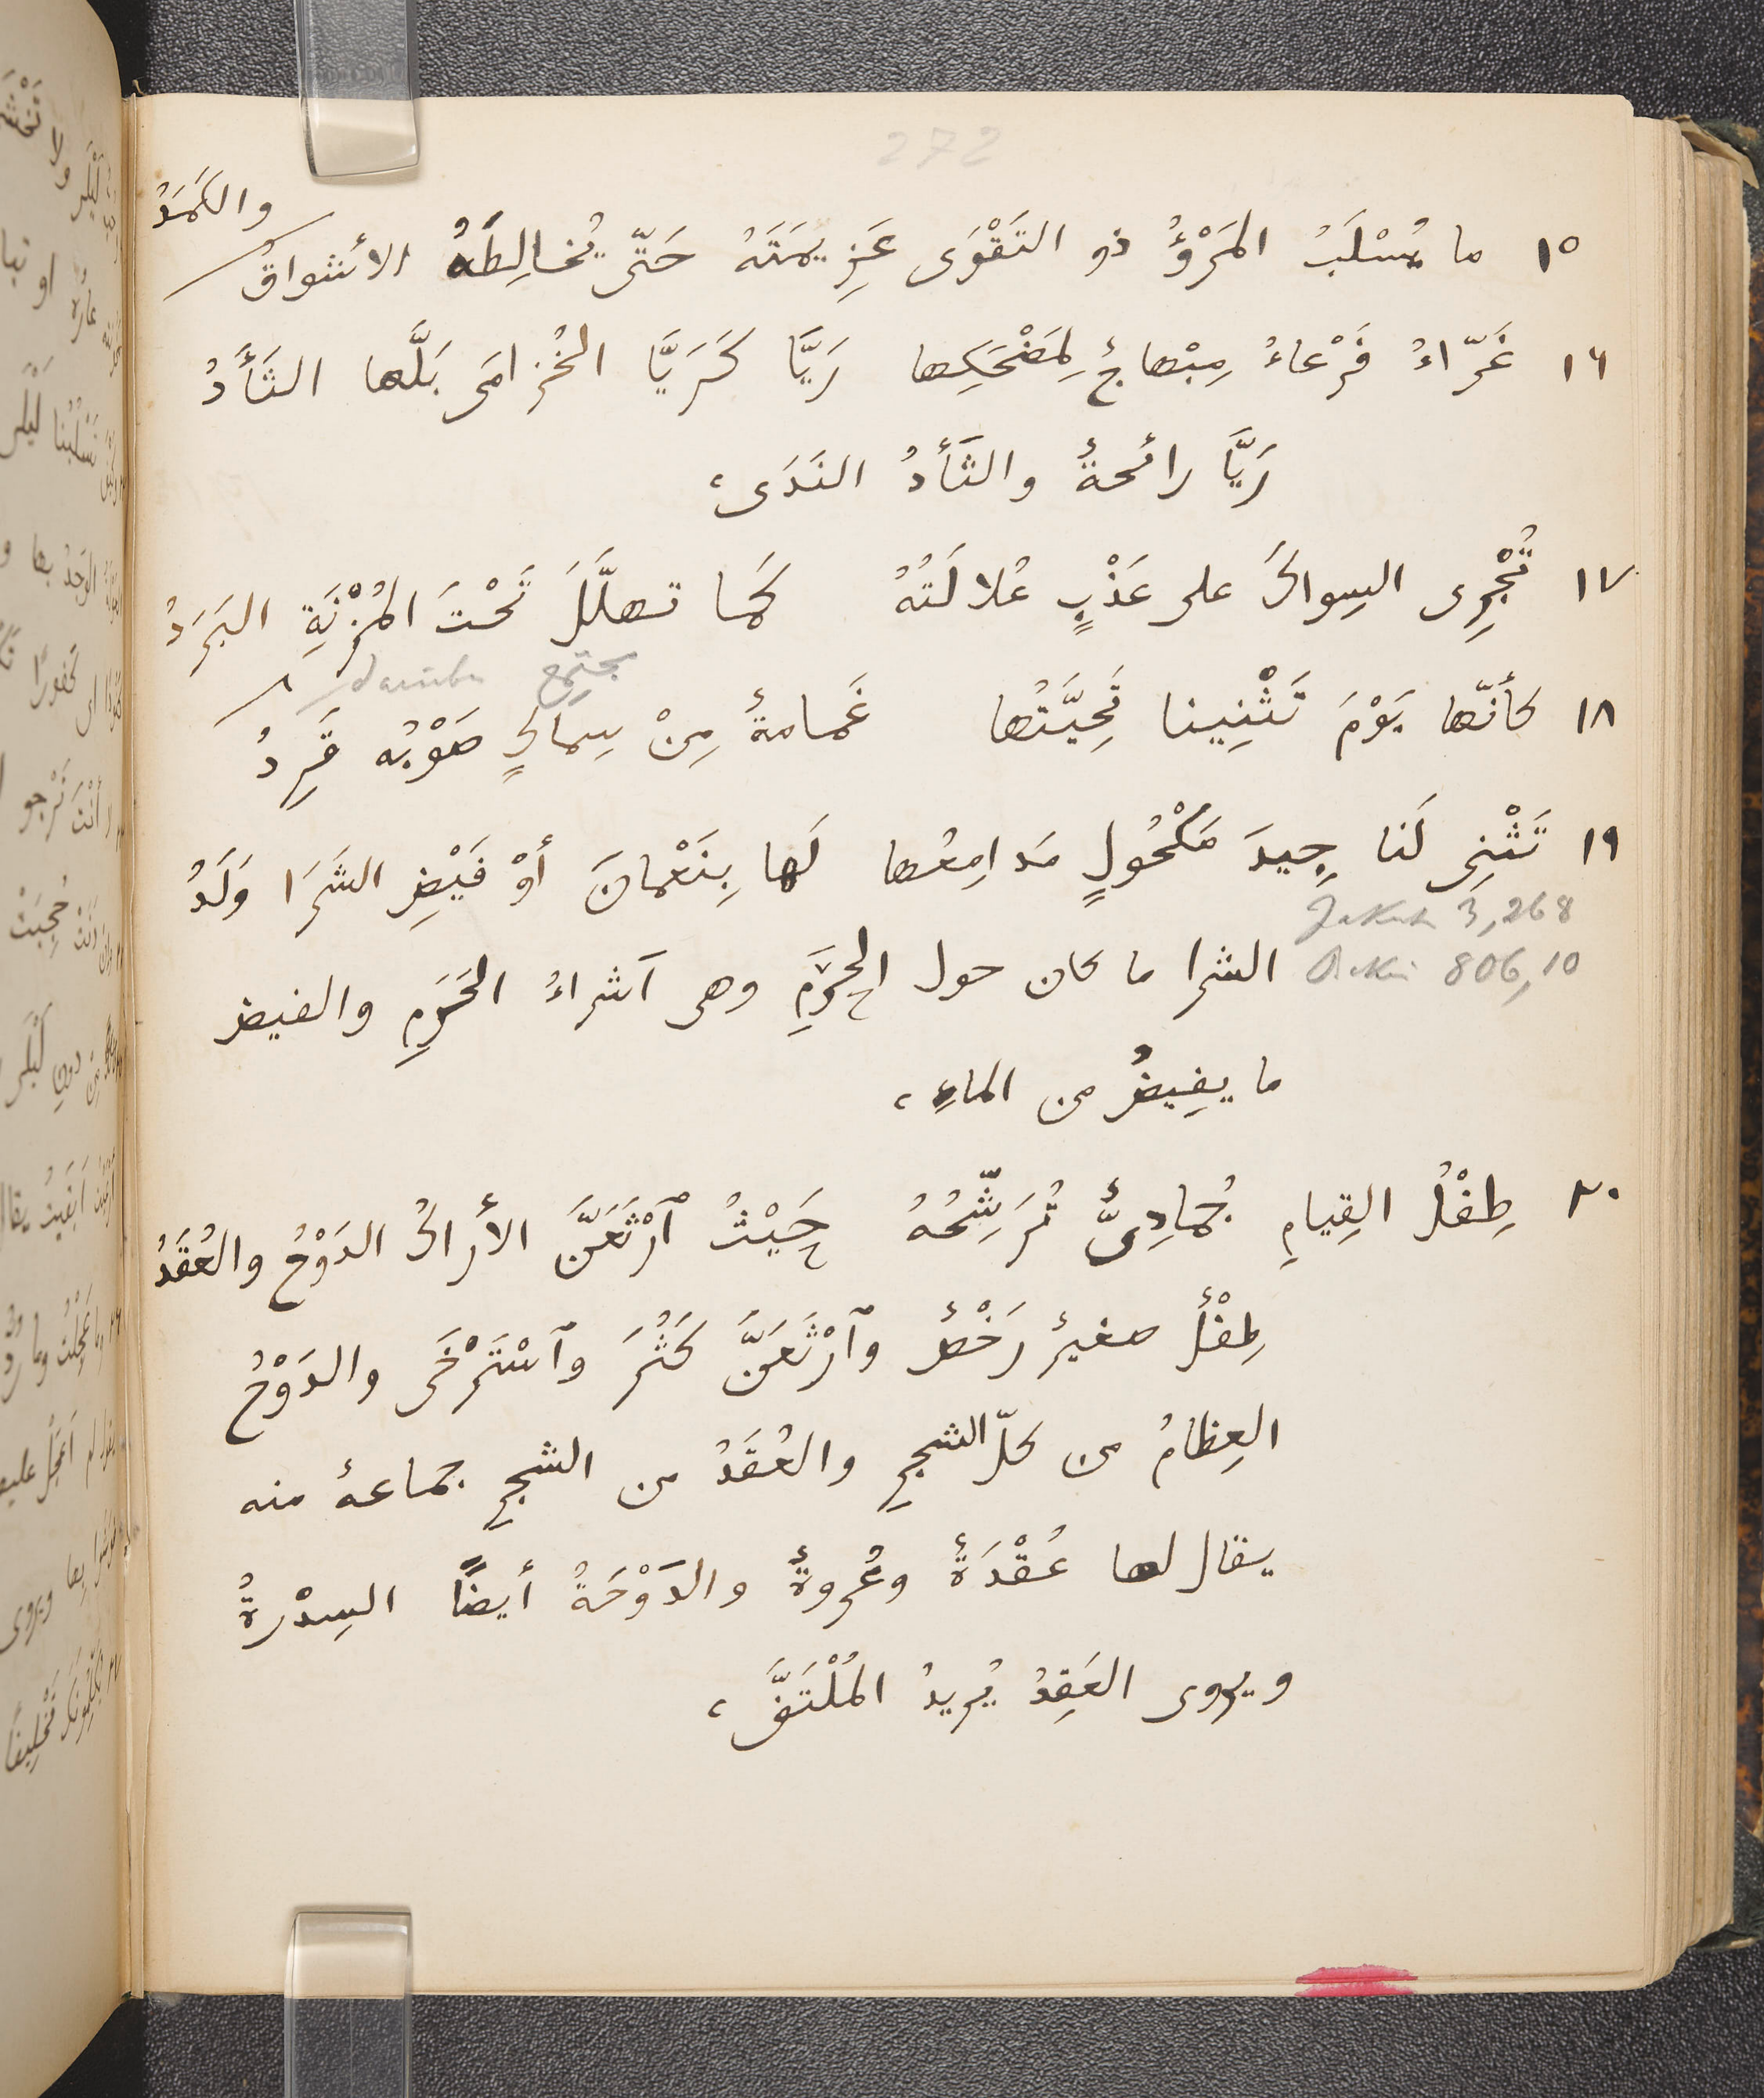 272
١٥ ما يُسْلَبُ المَرْؤُ ذو التَقْوَى عَزِيمَتَهُ حَتّى يُخالِطَهُ الأشواقُ والكَمَدُ
١٦ غَرّاءُ فَرْعاءُ مِبْهاجٌ لِمَضْحَكِها رَيَّا كَرَيَّا الخُزامَى بَلَّها الثَأَدُ
رَيَّا رائحةٌ والثَأَدُ النَدَى،
١٧ تُجْرِى السِواكَ على عَذْبٍ عُلالَتُهُ كَما تهلَّلَ تَحْتَ المُزْنَةِ البَرَدُ
مجتمِع darüber
١٨ كأنّها يَوْمَ تَثْنِينا تَحِيَّتُها غَمامةٌ مِنْ سِماكٍ صَوْبُه قَرِدُ
١٩ تَثْنِى لَنا جِيدَ مَكْحُولٍ مَدامِعُها لَها بِنَعْمانَ أوْ فَيْضِ الشَرَا وَلَدُ
Jakut 3,268
الشرا ما كان حول الحَرَمِ وهى آشراءُ الحَرَمِ والفيض
Bekri 806,10
ما يفِيضُ من الماءِ،
٢٠ طِفْلُ القِيامِ جُمادِىٌّ تُرَشِّحُهُ حَيْثُ ٱرْثَعَنَّ الأراكُ الدَوْحُ والعُقَدُ
طِفْلٌ صغيرٌ رَخْصٌ وٱرْثَعَنَّ كَثُرَ وٱسْتَرْخَى والدَوْحُ
العِظامُ من كلّ الشجرِ والعُقَدُ من الشجرِ جماعةٌ منه
يقال لها عُقْدَةٌ وعُروةٌ والدَوْحَةُ أيضًا السِدْرةُ
ويروى العَقِدُ يُرِيدُ المُلْتَفَّ،